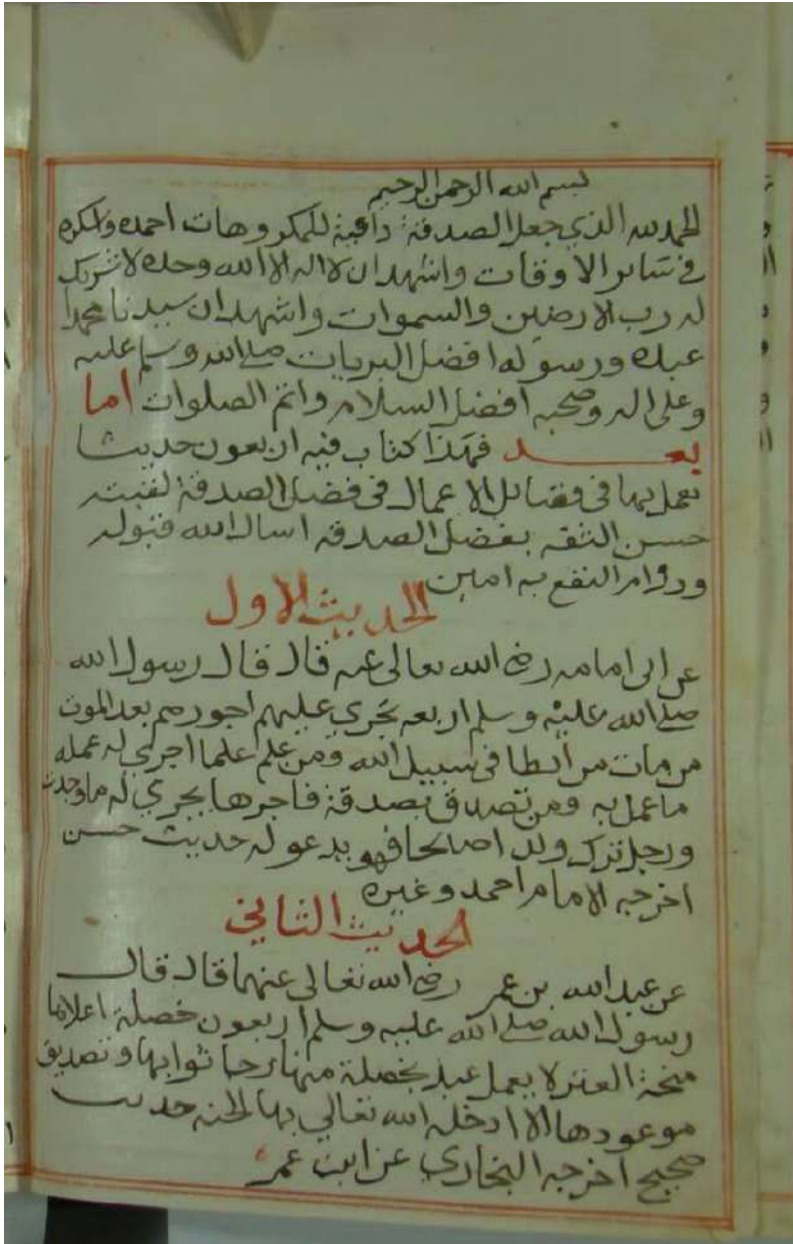 بسم الله الرحمن الرحيم
الحمد لله الذي جعل الصدقة دافعة للمكروهات احمده واشكره
في سائر الاوقات واشهد ان لا اله الا الله وحده لا شريك
له رب الارضين والسموات واشهد ان سيدنا محمدا
عبده ورسوله افضل البريات صلى الله وسلم عليه
وعلى اله وصحبه افضل السلام واتم الصلوات اما
بعد فهذا كتاب فيه اربعون حديثا
يعمل بها في فضائل الاعمال في فضل الصدقة لقبته
حسن الثقه بفضل الصدقه اسال الله قبوله
ودوام النفع به امين
الحديث الاول
عن ابي امامه رضي الله تعالى عنه قال قال رسول الله
صلى الله عليه وسلم اربعه تجري عليهم اجورهم بعد الموت
من مات مرابطا في سبيل الله ومن علم علما اجري له عمله
ما عمل به ومن تصدق بصدقة فاجرها يجري له ما وجدت
ورجل ترك ولدا صالحا فهو يدعو له حديث حسن
اخرجه الامام احمد وغيره
الحديث الثاني
عن عبد الله بن عمر رضي الله تعالى عنهما قال قال
رسول الله صلى الله عليه وسلم اربعون خصلة اعلاها
منحة العنز لا يعمل عبد بخصلة منها رجا ثوابها وتصديق
موعودها الا ادخله الله تعالي بها الجنه حديث
صحيح اخرجه البخاري عن ابن عمر